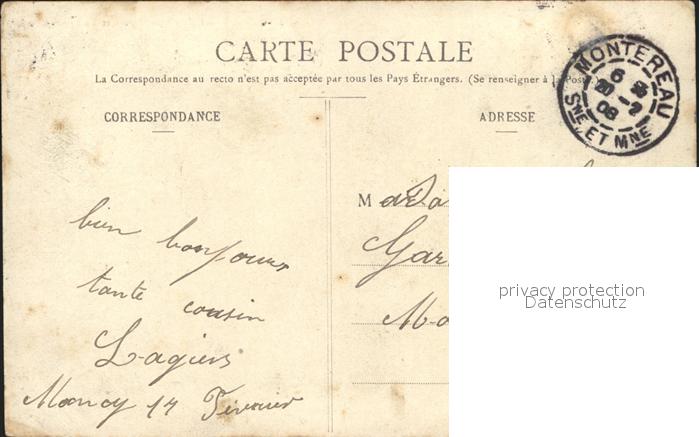 CARTE POSTALE
La Correspondance au recto n'est pas acceptée par tous les Pays Étrangers. (Se renseigner à la Poste.)
CORRESPONDANCE
ADRESSE
MONTEREAU
6
20 - 2
08
SNE ET MNE
M
bien bonjours
tante cousin
Lagiers
Mancy 14 Février
privacy protection
Datenschutz